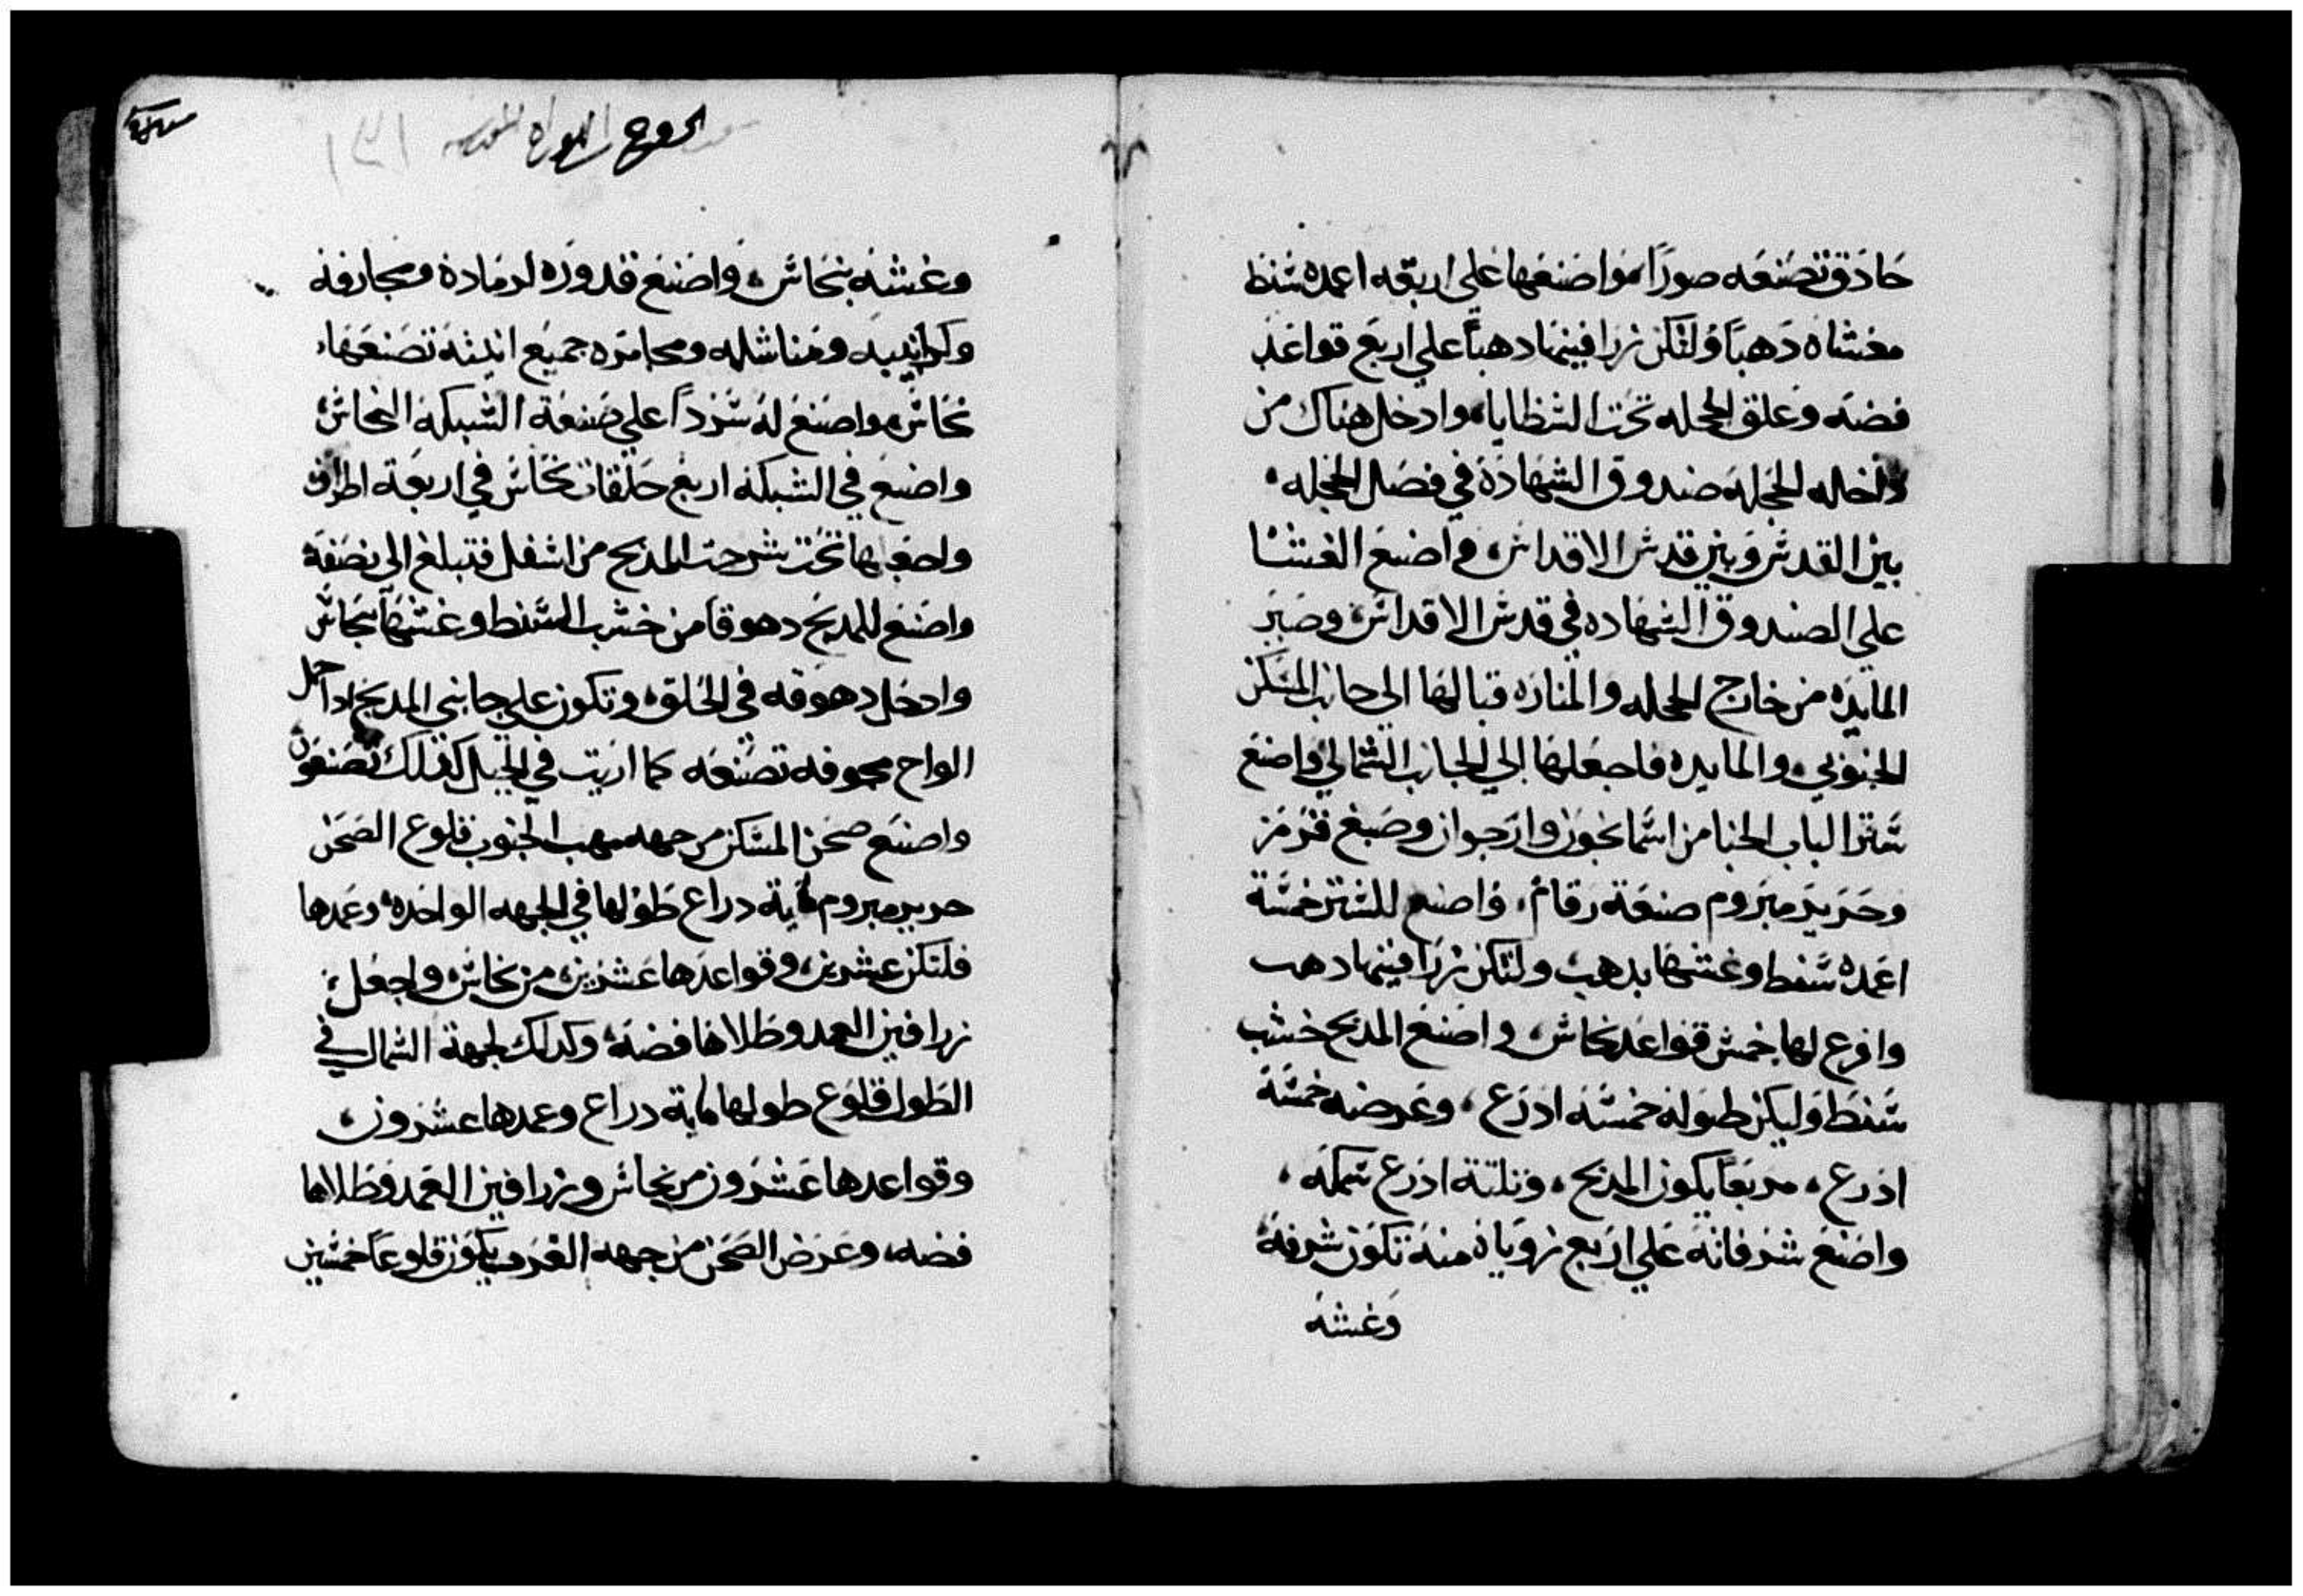 حادق تصنعه صوراً، واصنعها علي اربعه اعمده شنط
مغشاه دهباً ولتكن زرافينها دهباً علي اربع قواعد
فضه وعلق الحجله تحت الشظايا، وادخل هناك من
داخله الحجله صندوق الشهادة في فصل الحجله
بين القدش وبين قدش الاقداش، واضع الغشا
علي الصندوق الشهاده في قدش الاقداش، وصير
المايده من خارج الحجله والمناره قبالها الي جانب المشكن
الجنوبي، والمايده فاجعلها الي الجانب الشمالي واصنع
شترا لباب الخبا من اشمانجون وارجوان وصبغ قرمز
وحرير مبروم صنعة رقام، واصنع للشتر خمشة
اعمده شنط وغشها بدهب، ولتكن زرافينها دهب
وافرع لها خمش قواعد نحاش، واصنع المدبح خشب
شنط وليكن طوله خمشه ادرع، وعرضه خمشة
ادرع، مربعاً يكون المدبح، وتلتة ادرع شمكه،
واصنع شرفاته علي اربع زوياه منه تكون شرفة
وغشه
خروج
وغشه بنحاش، واصنع قدوره لرماده ومجارفه
ومناشله ومجامره جميع انيته تصنعها،
نحاش، واصنع له شرداً علي صنعة الشبكة النحاش
واصنع في الشبكة اربع حلقات نحاش في اربعة اطراف
واجعلها تحت شرحت المدبح من اشفل فتبلغ الي نصفه
واصنع للمدبح دهوقا من خشب الشنط وغشها نحاش
وادخل دهوقه في الحلق، وتكون علي جانبي المدبح ادا حمل
الواح مجوفه تصنعه كما اريت في الجبل كدلك تصنعون
واصنع صحن المشكن من جهه مهب الجنوب قلوع الصحن
حرير مبروم ماية دراع طولها في الجهه الواحده، وعمدها
فلتكن عشرين، وقواعدها عشرين، من نحاش، واجعل
زرافين العمد وظلاها فضة، وكدلك لجهة الشمال في
الطول قلوع طولها ماية دراع وعمدها عشرون،
وقواعدها عشرون من نحاش وزرافين العمد وظلاها
فضه، وعرض الصحن من جهه الغرب يكون قلوعاً خمشين